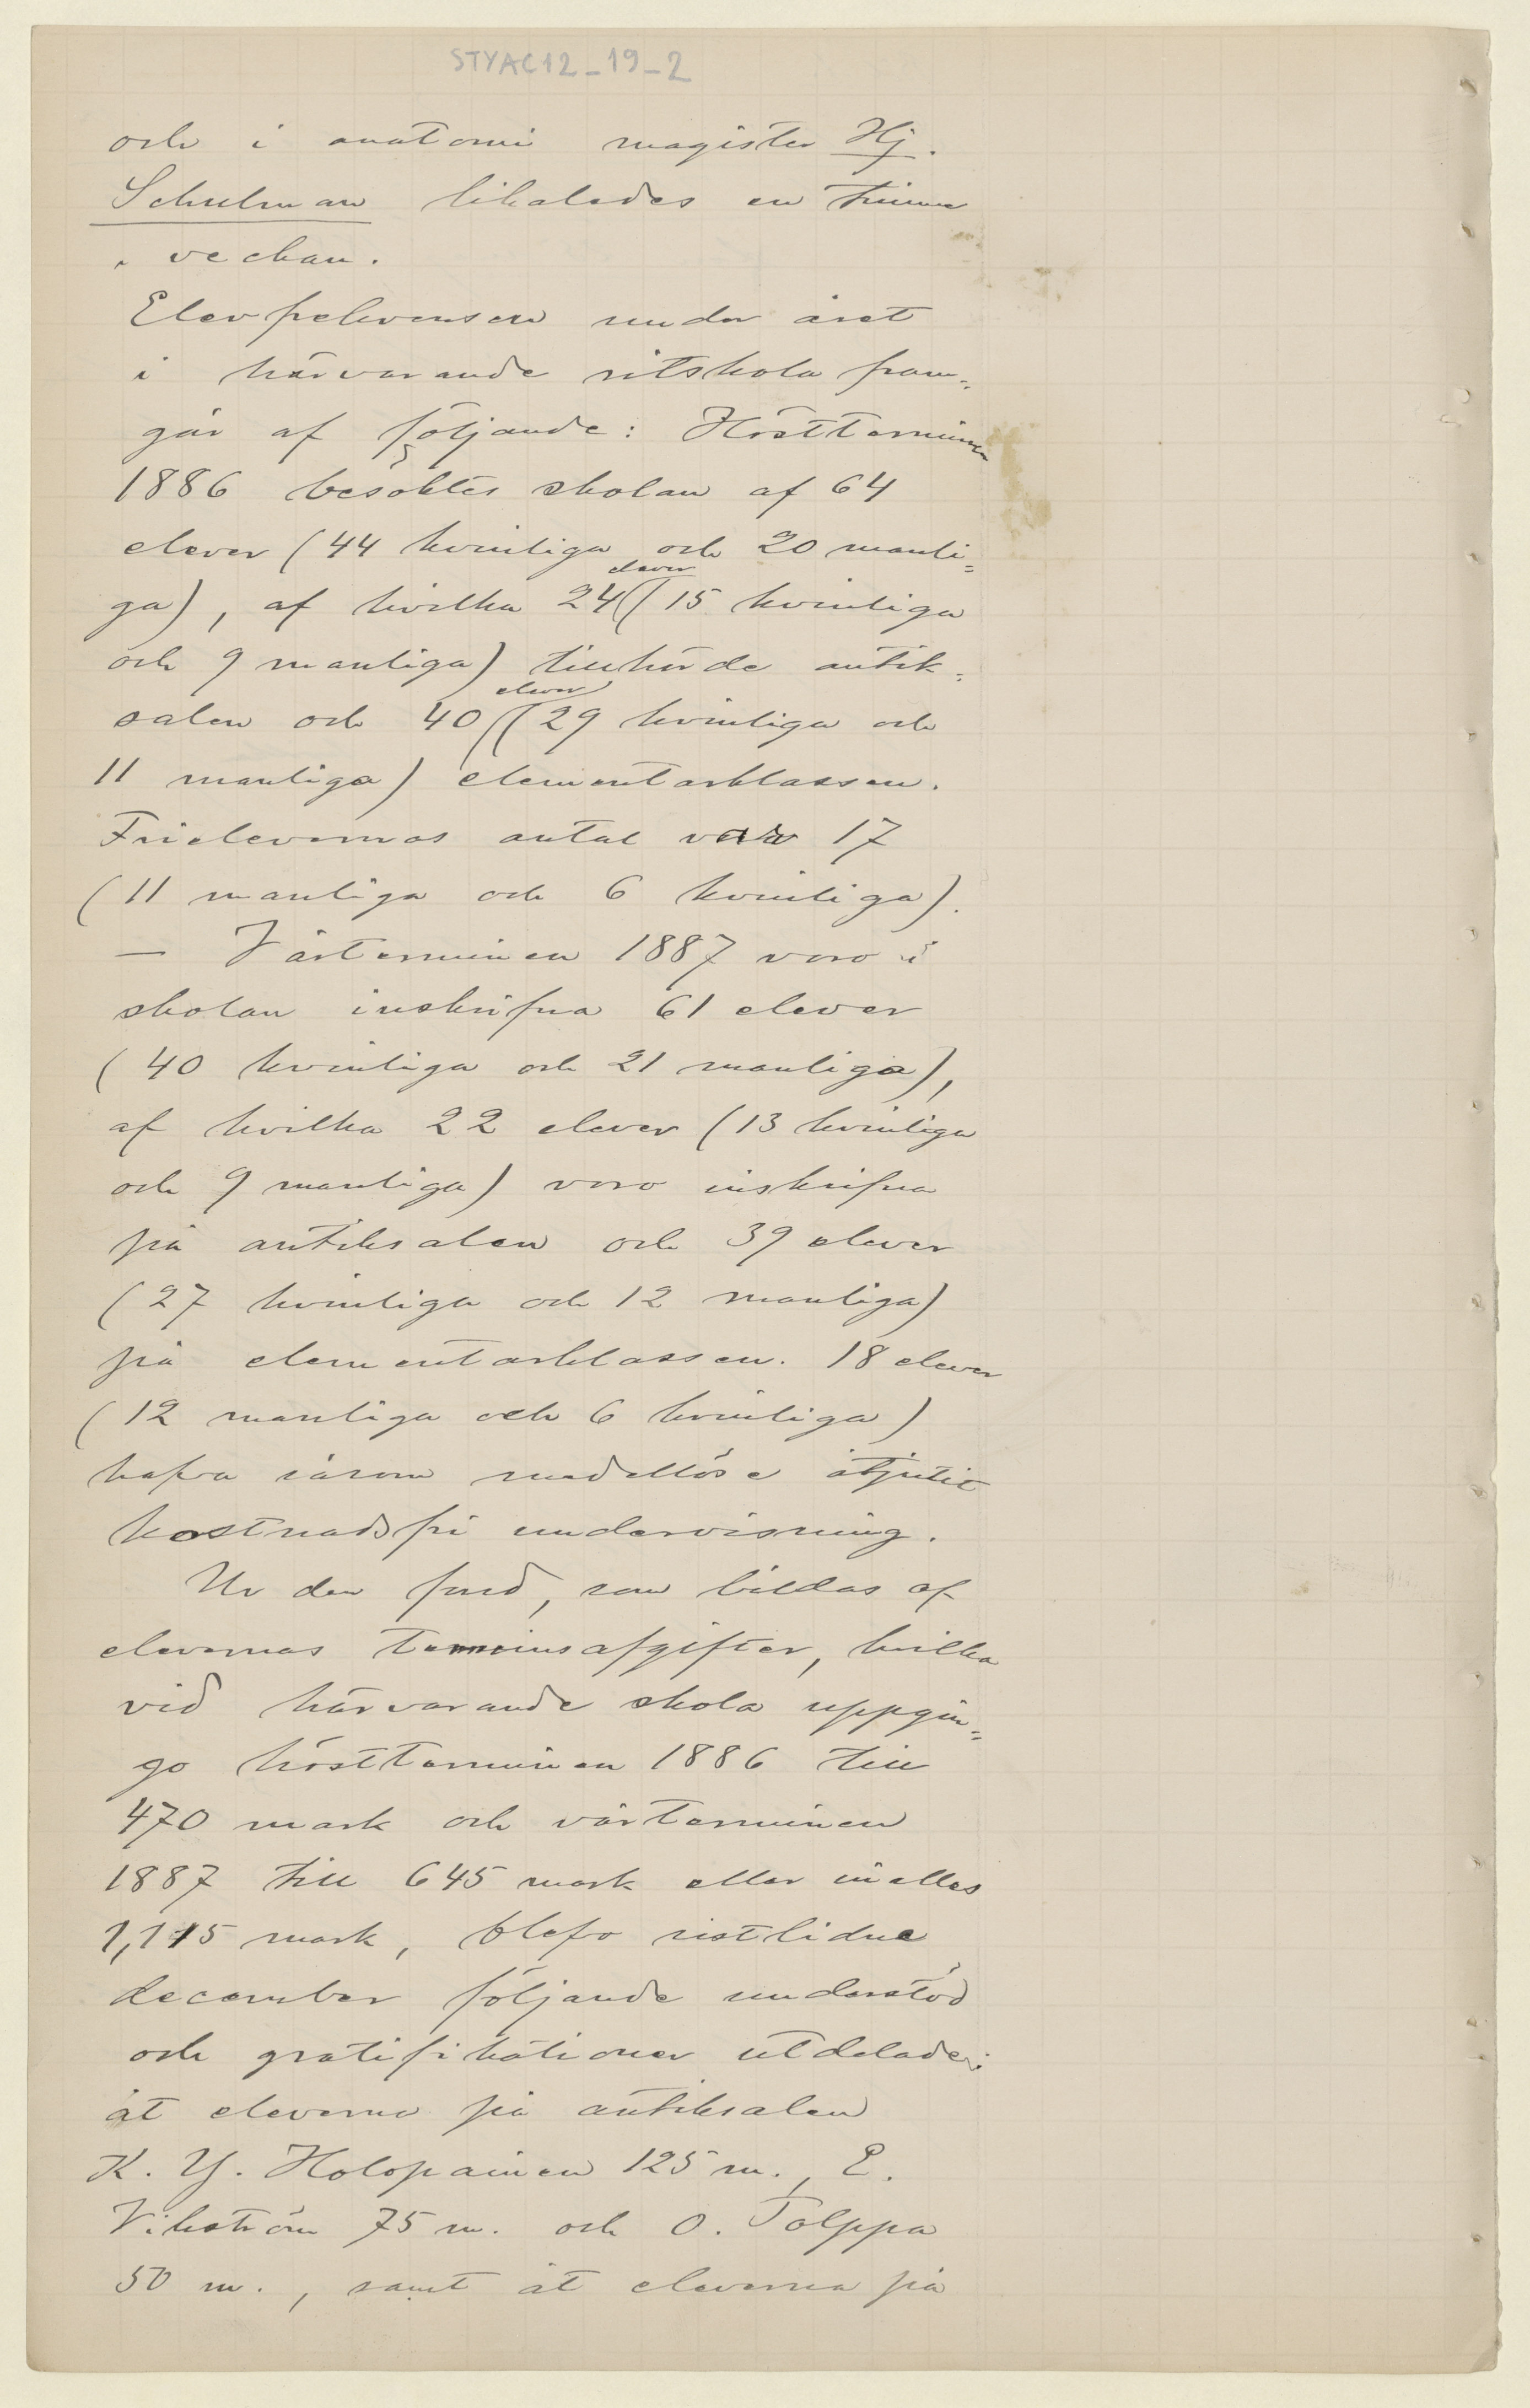 STYAC12_19_2
och i anatomi magister Hj.
Schulman likaledes en timme
i veckan.
Elevfrekvensen under året
i härvarande ritskola fram-
går af följande: Höstterminen
1886 besöktes skolan af 64
elever (44 kvinliga och 20 manli-
elever
ga), af hvilka 24 (15 kvinliga
och 9 manliga) tillhörde antik-
elever
salen och 40 (29 kvinliga och
11 manliga) elementarklassen.
Frielevernas antal var 17
(11 manliga och 6 kvinliga).
— Vårterminen 1887 voro i
skolan inskrifna 61 elever
(40 kvinliga och 21 manliga),
af hvilka 22 elever (13 kvinliga
och 9 manliga) voro inskrifna
på antiksalen och 39 elever
(27 kvinliga och 12 manliga)
på elementarklassen. 18 elever
(12 manliga och 6 kvinliga)
hafva såsom medellöse åtnjutit
kostnadsfri undervisning.
Ur den fond, som bildas af
elevernas terminsafgifter, hvilka
vid härvarande skola uppgin-
go höstterminen 1886 till
470 mark och vårterminen
1887 till 645 mark eller inalles
1,115 mark, blefvo sistlidne
december följande understöd
och gratifikationer utdelade:
åt eleverna på antiksalen
K. Y. Holopainen 125 m., E.
Vikström 75 m. och O. Tolppa
50 m., samt åt eleverna på